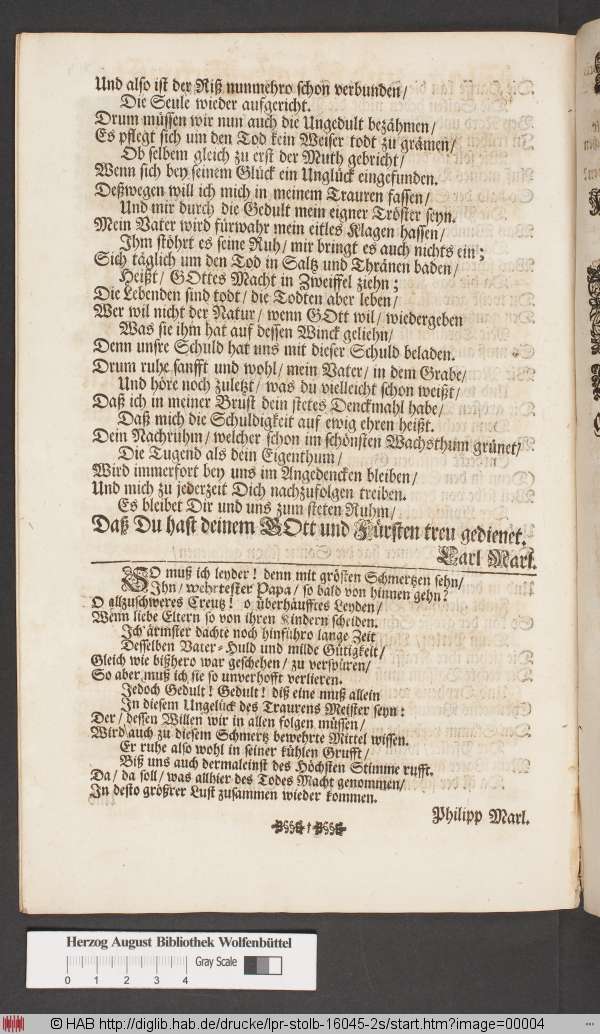 Und also ist der Riß nunmehro schon verbunden/
Die Seule wieder aufgericht.
Drum müssen wir nun auch die Ungedult bezähmen/
Es pflegt sich um den Tod kein Weiser todt zu grämen/
Ob selbem gleich zu erst der Muth gebricht/
Wenn sich bey seinem Glück ein Unglück eingefunden.
Deßwegen will ich mich in meinem Trauren fassen/
Und mir durch die Gedult mein eigner Tröster seyn.
Mein Vater wird fürwahr mein eitles Klagen hassen/
Ihm stöhrt es seine Ruh/ mir bringt es auch nichts ein;
Sich täglich um den Tod in Saltz und Thränen baden/
Heißt/ GOttes Macht in Zweiffel ziehn;
Die Lebenden sind todt/ die Todten aber leben/
Wer wil nicht der Natur/ wenn GOtt wil/ wiedergeben
Was sie ihm hat auf dessen Winck geliehn/
Denn unsre Schuld hat uns mit dieser Schuld beladen.
Drum ruhe sanfft und wohl/ mein Vater/ in dem Grabe/
Und höre noch zuletzt/ was du vielleicht schon weißt/
Daß ich in meiner Brust dein stetes Denckmahl habe/
Daß mich die Schuldigkeit auf ewig ehren heißt.
Dein Nachruhm/ welcher schon im schönsten Wachsthum grünet/
Die Tugend als dein Eigenthum/
Wird immerfort bey uns im Angedencken bleiben/
Und mich zu jederzeit Dich nachzufolgen treiben.
Es bleibet Dir und uns zum steten Ruhm/
Daß Du hast deinem GOtt und Fürsten treu gedienet.
Carl Marl.
SO muß ich leyder! denn mit grösten Schmertzen sehn/
Ihn/ wehrtester Papa/ so bald von hinnen gehn?
O allzuschweres Creutz! o überhäufftes Leyden/
Wenn liebe Eltern so von ihren Kindern scheiden.
Ich ärmster dachte noch hinführo lange Zeit
Desselben Vater-Huld und milde Gütigkeit/
Gleich wie bißhero war geschehen/ zu verspüren/
So aber muß ich sie so unverhofft verlieren.
Jedoch Gedult! Gedult! diß eine muß allein
In diesem Ungelück des Traurens Meister seyn:
Der/ dessen Willen wir in allen folgen müssen/
Wird auch zu diesem Schmertz bewehrte Mittel wissen.
Er ruhe also wohl in seiner kühlen Grufft/
Biß uns auch dermaleinst des Höchsten Stimme rufft.
Da/ da soll/ was allhier des Todes Macht genommen/
In desto größrer Lust zusammen wieder kommen.
Philipp Marl.
Herzog August Bibliothek Wolfenbüttel
0 1 2 3 4
Gray Scale
© HAB http://diglib.hab.de/drucke/lpr-stolb-16045-2s/start.htm?image=00004